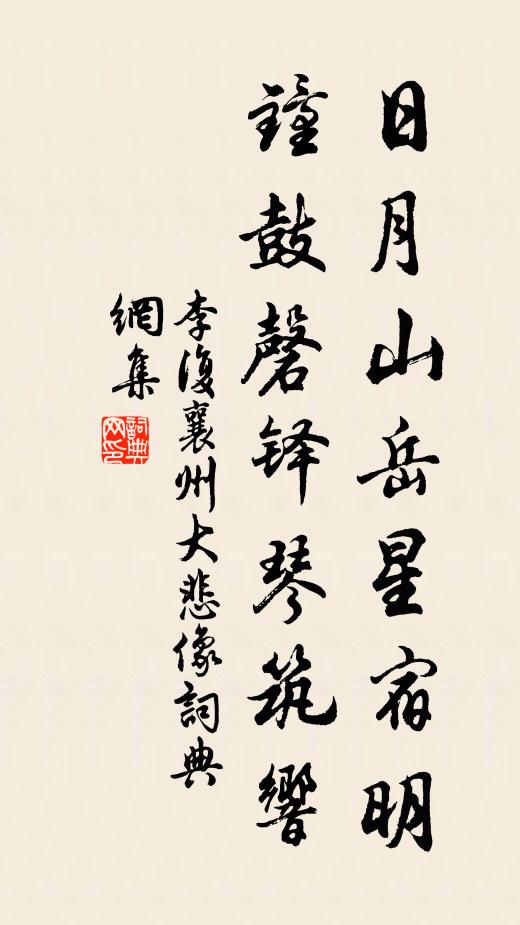 日月山岳星宿明
鐘鼓磬铎琴筑響
李復襄州大悲像詞典
網集
詞典網印